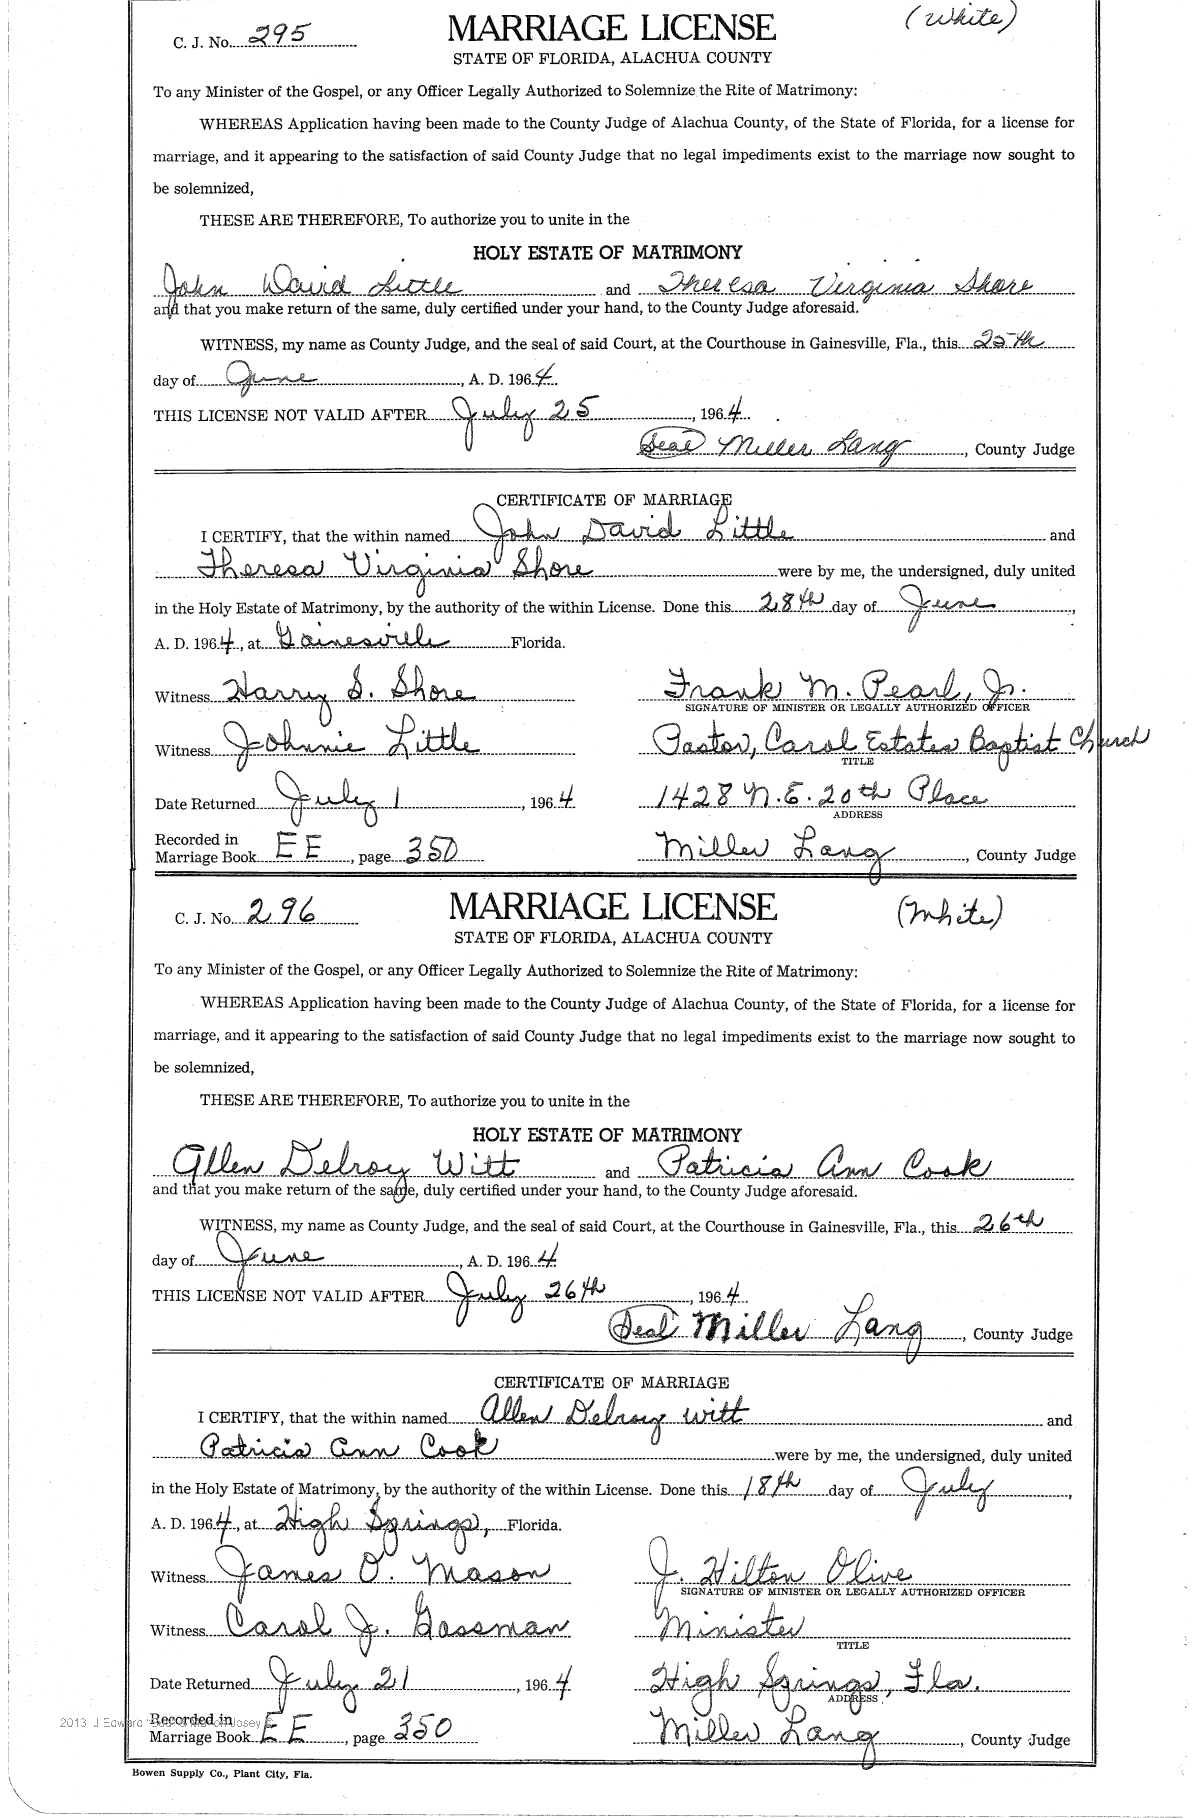 C. J. No. 295
MARRIAGE LICENSE
(White)
STATE OF FLORIDA, ALACHUA COUNTY
To any Minister of the Gospel, or any Officer Legally Authorized to Solemnize the Rite of Matrimony:
WHEREAS Application having been made to the County Judge of Alachua County, of the State of Florida, for a license for
marriage, and it appearing to the satisfaction of said County Judge that no legal impediments exist to the marriage now sought to
be solemnized,
THESE ARE THEREFORE, To authorize you to unite in the
HOLY ESTATE OF MATRIMONY
John David Little and Theresa Virginia Shore
and that you make return of the same, duly certified under your hand, to the County Judge aforesaid.
WITNESS, my name as County Judge, and the seal of said Court, at the Courthouse in Gainesville, Fla., this 25th
day of June, A. D. 1964.
THIS LICENSE NOT VALID AFTER July 25, 1964.
Seal Miller Lang, County Judge
CERTIFICATE OF MARRIAGE
I CERTIFY, that the within named John David Little and
Theresa Virginia Shore were by me, the undersigned, duly united
in the Holy Estate of Matrimony, by the authority of the within License. Done this 28th day of June,
A. D. 1964, at Gainesville Florida.
Witness Harry S. Shore Frank M. Pearl, Jr.
SIGNATURE OF MINISTER OR LEGALLY AUTHORIZED OFFICER
Witness Johnnie Little Pastor, Carol Estates Baptist Church
TITLE
Date Returned July 1, 1964 1428 N.E. 20th Place
ADDRESS
Recorded in
Marriage Book EE, page 350 Miller Lang, County Judge
C. J. No. 296
MARRIAGE LICENSE
(White)
STATE OF FLORIDA, ALACHUA COUNTY
To any Minister of the Gospel, or any Officer Legally Authorized to Solemnize the Rite of Matrimony:
WHEREAS Application having been made to the County Judge of Alachua County, of the State of Florida, for a license for
marriage, and it appearing to the satisfaction of said County Judge that no legal impediments exist to the marriage now sought to
be solemnized,
THESE ARE THEREFORE, To authorize you to unite in the
HOLY ESTATE OF MATRIMONY
Allen Delroy Witt and Patricia Ann Cook
and that you make return of the same, duly certified under your hand, to the County Judge aforesaid.
WITNESS, my name as County Judge, and the seal of said Court, at the Courthouse in Gainesville, Fla., this 26th
day of June, A. D. 1964.
THIS LICENSE NOT VALID AFTER July 26th, 1964.
Seal Miller Lang, County Judge
CERTIFICATE OF MARRIAGE
I CERTIFY, that the within named Allen Delroy Witt and
Patricia Ann Cook were by me, the undersigned, duly united
in the Holy Estate of Matrimony, by the authority of the within License. Done this 18th day of July,
A. D. 1964, at High Springs, Florida.
Witness James O. Mason J. Hilton Olive
SIGNATURE OF MINISTER OR LEGALLY AUTHORIZED OFFICER
Witness Carol J. Gossman Minister
TITLE
Date Returned July 21, 1964 High Springs, Fla.
ADDRESS
2013 J Edward Josey
Recorded in
Marriage Book EE, page 350 Miller Lang, County Judge
Bowen Supply Co., Plant City, Fla.